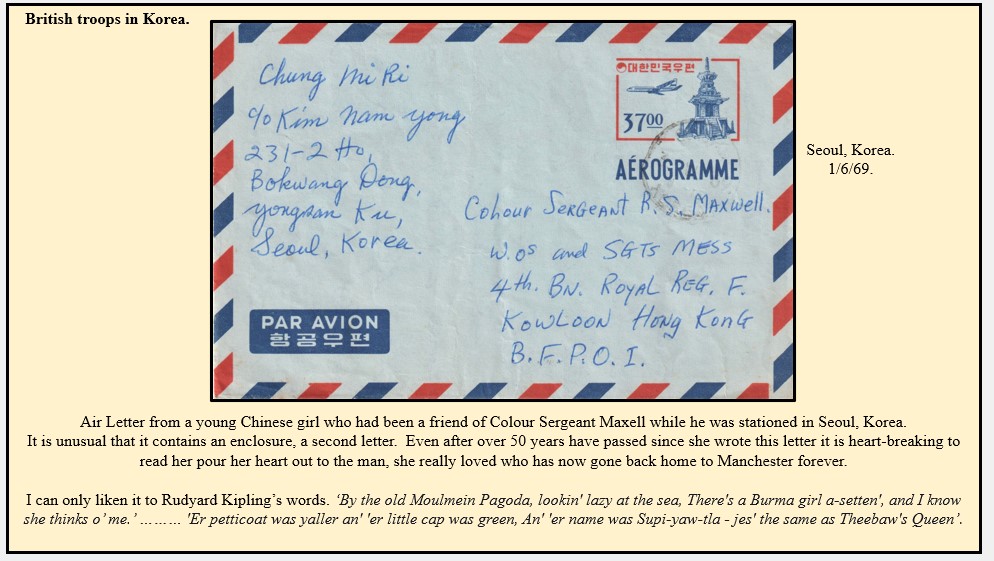 British troops in Korea.
Chung Mi Ri
c/o Kim Nam yong
231-2 Ho,
Bokwang Dong,
yongsan Ku,
Seoul, Korea.
대한민국우편
3700
AÉROGRAMME
Colour SERGEANT R.S. MAXWELL.
W.Os and SGTs MESS
4th. BN. ROYAL REG. F.
KOWLOON HONG KONG
B.F.P.O.1.
PAR AVION
항공우편
Seoul, Korea.
1/6/69.
Air Letter from a young Chinese girl who had been a friend of Colour Sergeant Maxell while he was stationed in Seoul, Korea.
It is unusual that it contains an enclosure, a second letter.  Even after over 50 years have passed since she wrote this letter it is heart-breaking to
read her pour her heart out to the man, she really loved who has now gone back home to Manchester forever.
I can only liken it to Rudyard Kipling’s words. ‘By the old Moulmein Pagoda, lookin' lazy at the sea, There's a Burma girl a-setten', and I know
she thinks o’ me.’ ……… 'Er petticoat was yaller an' 'er little cap was green, An' 'er name was Supi-yaw-tla - jes' the same as Theebaw's Queen’.